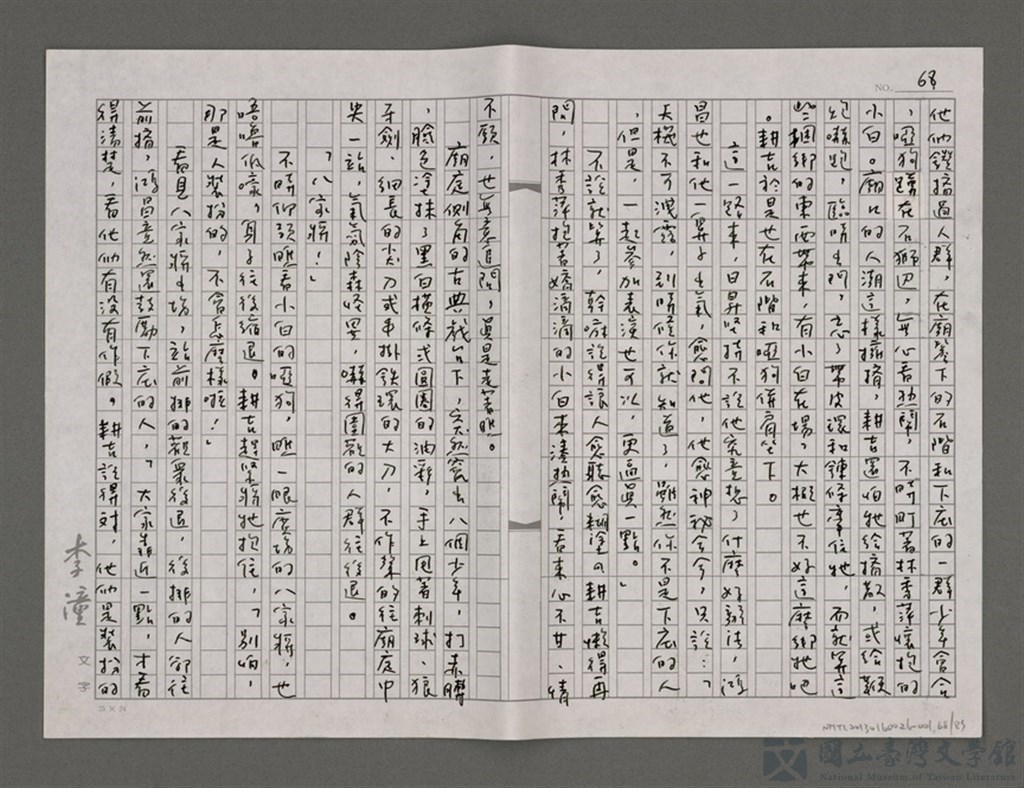 NO. 68
他們鑽擠過人群，在廟簷下的石階和下庄的一群少年會合
，啞狗蹲在石獅邊，無心看熱鬧，不時盯著林秀萍懷抱的
小白。廟口的人潮這樣擁擠，耕吉還怕牠給擠散，或給鞭
炮嚇跑，臨時出門，忘了帶皮還和鍊條牽住牠，而就算這
些綑綁的東西帶來，有小白在場，大概也不好這麼綁牠吧
。耕吉於是也在石階和啞狗併肩坐下。
這一路來，日昇堅持不說他究竟想了什麼好辦法，鴻
昌也和他一鼻子出氣，愈問他，他愈神秘兮兮，只說：「
天機不可洩露，到時候你就知道了，雖然你不是下庄的人
，但是，一起參加表演也可以，更逼真一點。」
不說就算了，幹嘛說得讓人愈聽愈糊塗？耕吉懶得再
問，林秀萍抱著嬌滴滴的小白來湊熱鬧，看來心不甘、情
不願，也無意追問，真是走著瞧。
廟庭側角的古典戲台下，突然竄出八個少年，打赤膊
，臉色塗抹了黑白橫條或圓圈的油彩，手上甩著刺球、狼
牙劍、細長的尖刀或串掛鐵環的大刀，不作聲的往廟庭中
央一站，氣氛陰森怪異，嚇得圍觀的人群往後退。
「八家將！」
不時仰頭瞧看小白的啞狗，瞧一眼廣場的八家將，也
唔唔低嚎，身子往後縮退。耕吉趕緊將牠抱住，「別怕，
那是人裝扮的，不會怎麼樣啦！」
看見八家將出場，站前排的觀眾後退，後排的人卻往
前擠，鴻昌竟然還鼓勵下庄的人，「大家靠近一點，才看
得清楚，看他們有沒有作假。耕吉說得對，他們是裝扮的
李潼
文字
25×24
NMTL20130160026-001,68/83
國立臺灣文學館
National Museum of Taiwan Literature